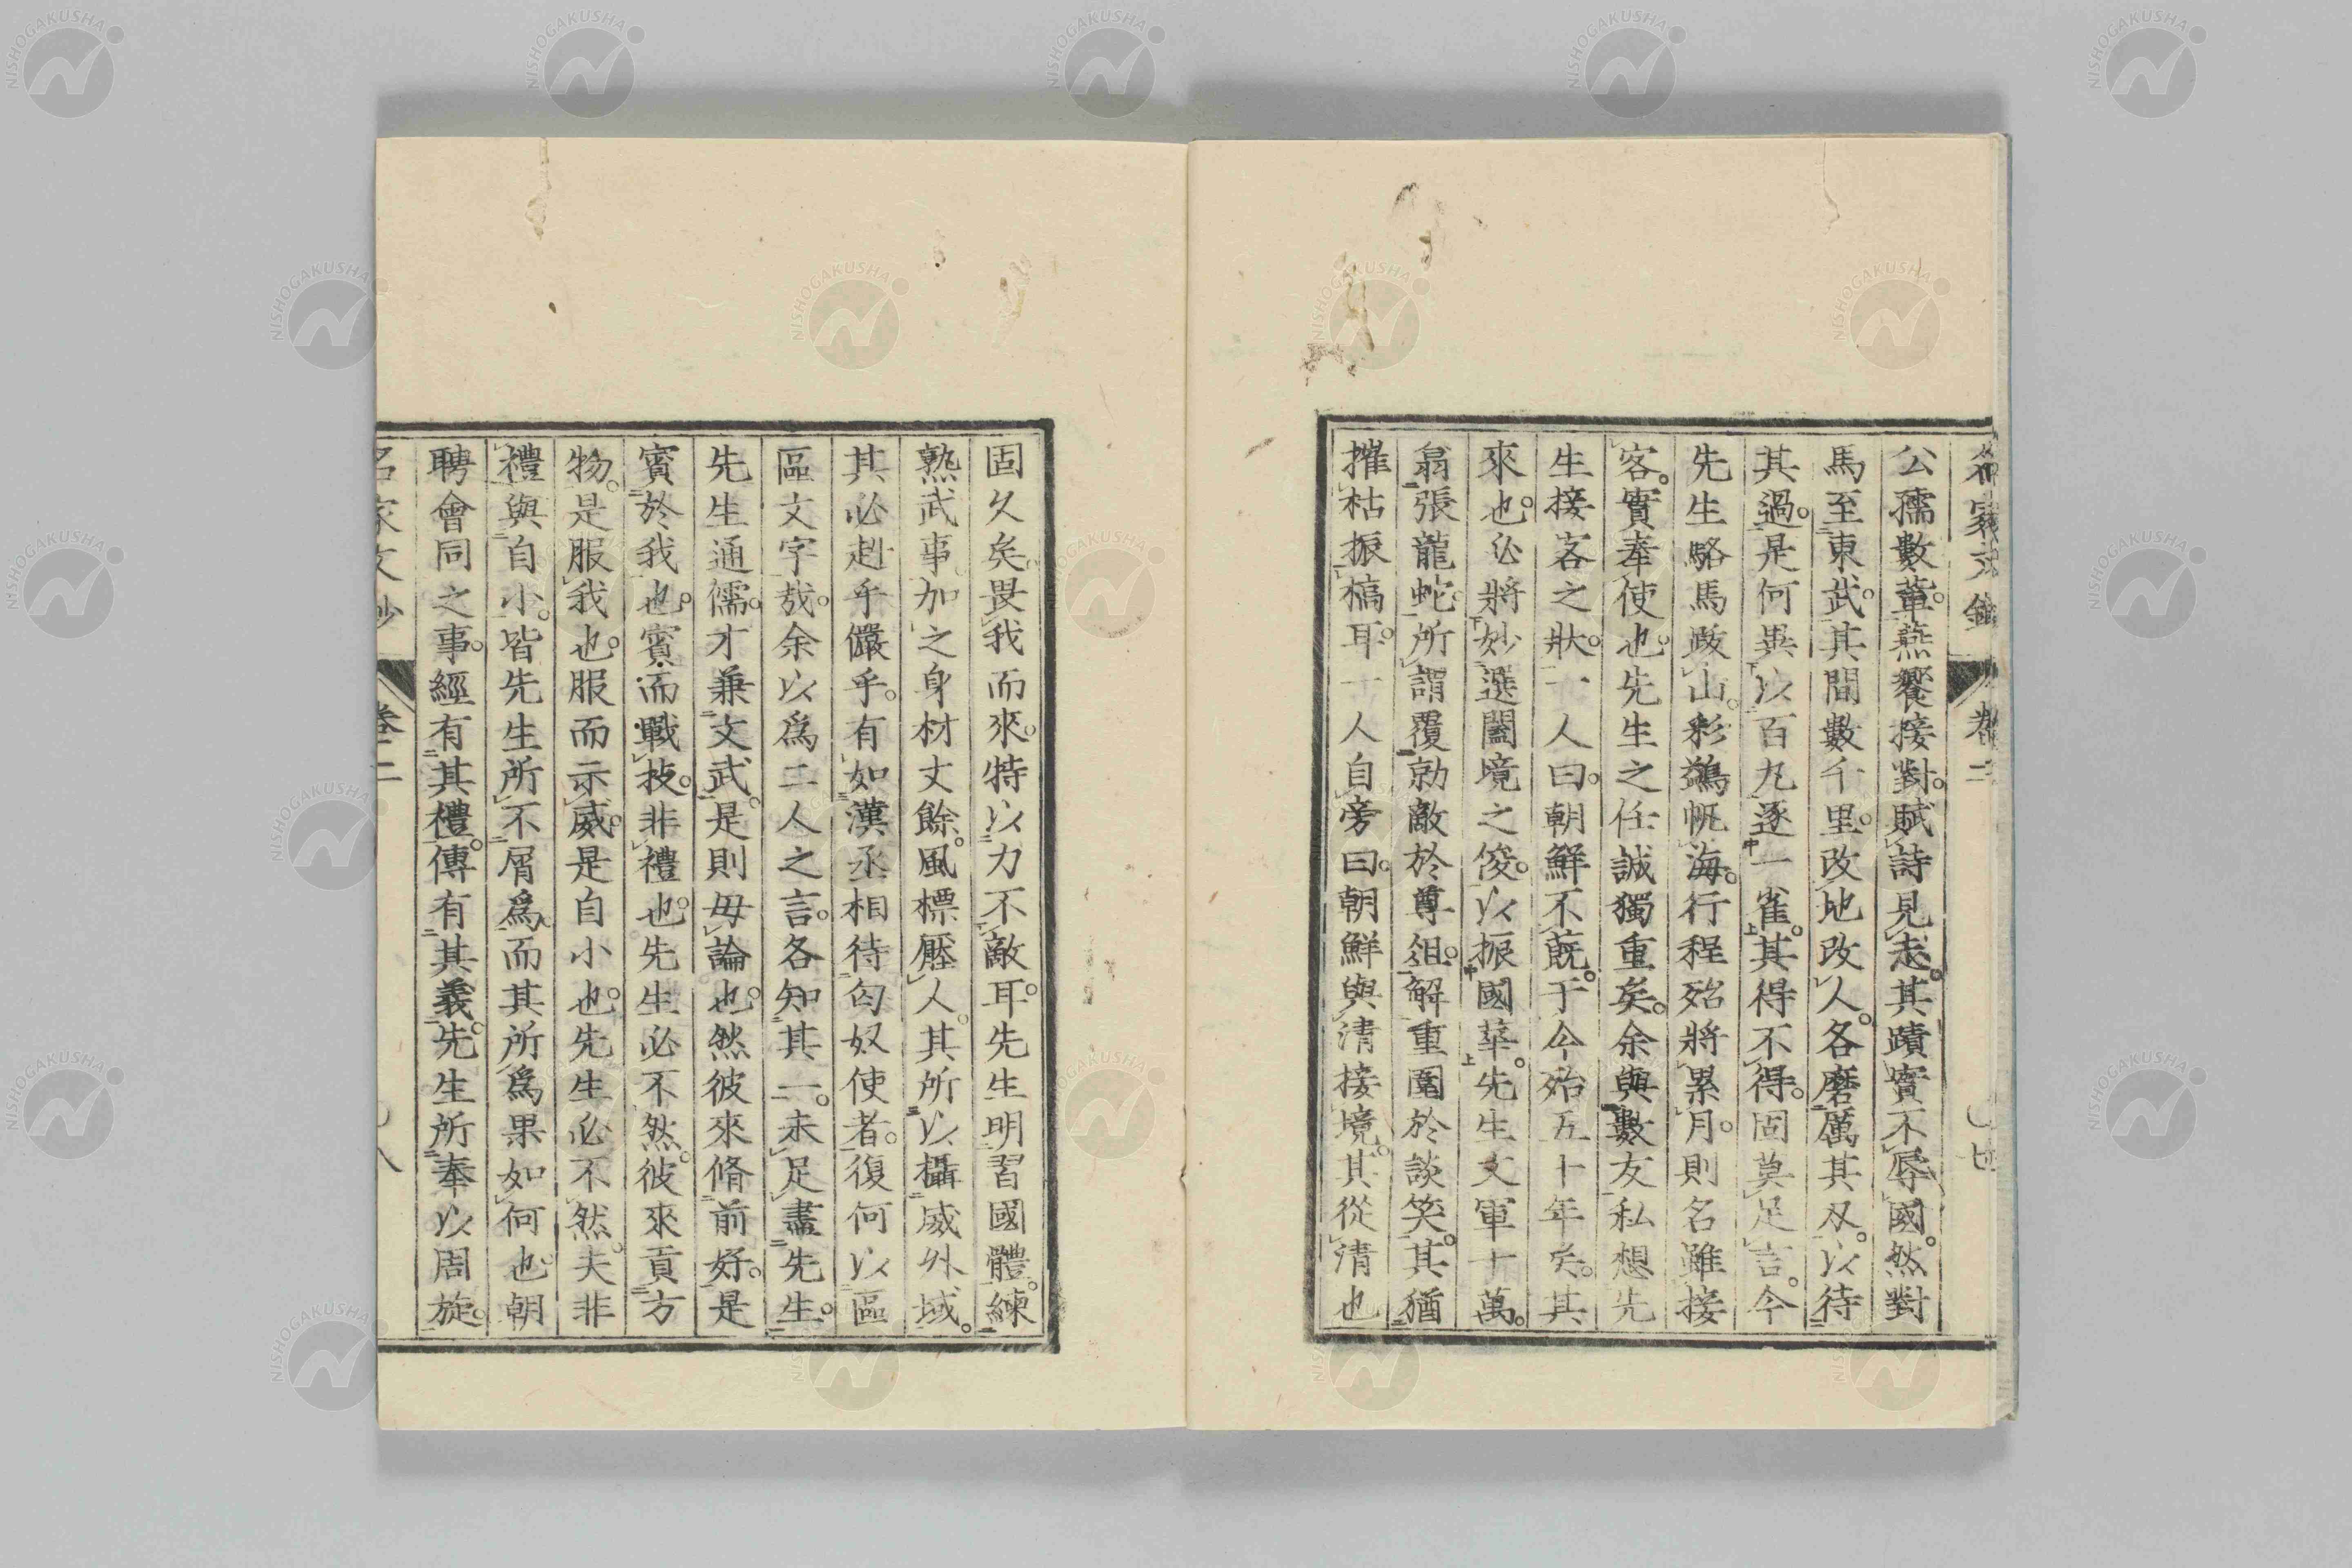 名家文鈔 卷二
公孺數輩。燕饗接對。賦詩見志。其蹟實不辱國。然對
馬至東武。其間數千里。改地改人。各磨厲其刄。以待
其過。是何異以百丸逐一雀。其得不得。固莫足言。今
先生駱馬跋山。彩鷁帆海。行程殆將累月。則名雖接
客。實奉使也。先生之任誠獨重矣。余與數友私想先
生接客之狀。一人曰。朝鮮不蓺。于今殆五十年矣。其
來也。必將妙選闔境之俊。以振國華。先生文軍十萬。
翕張龍蛇。所謂覆勍敵於尊俎。解重圍於談笑。其猶
摧枯振槁耳。一人自旁曰。朝鮮與清接境。其從清也
固久矣。畏我而來。特以力不敵耳。先生明習國體。練
熟武事。加之身材丈餘。風標壓人。其所以攝威外域。
其必赳乎儼乎。有如漢丞相待匈奴使者。復何以區
區文字哉。余以爲二人之言。各知其一。未足盡先生。
先生通儒。才兼文武。是則毋論也。然彼來脩前好。是
賓於我也。賓而戰技。非禮也。先生必不然。彼來貢方
物。是服我也。服而示威。是自小也。先生必不然。夫非
禮與自小。皆先生所不屑爲。而其所爲果如何也。朝
聘會同之事。經有其禮。傳有其義。先生所奉以周旋。
名家文鈔 卷二 八
NISHOGAKUSHA